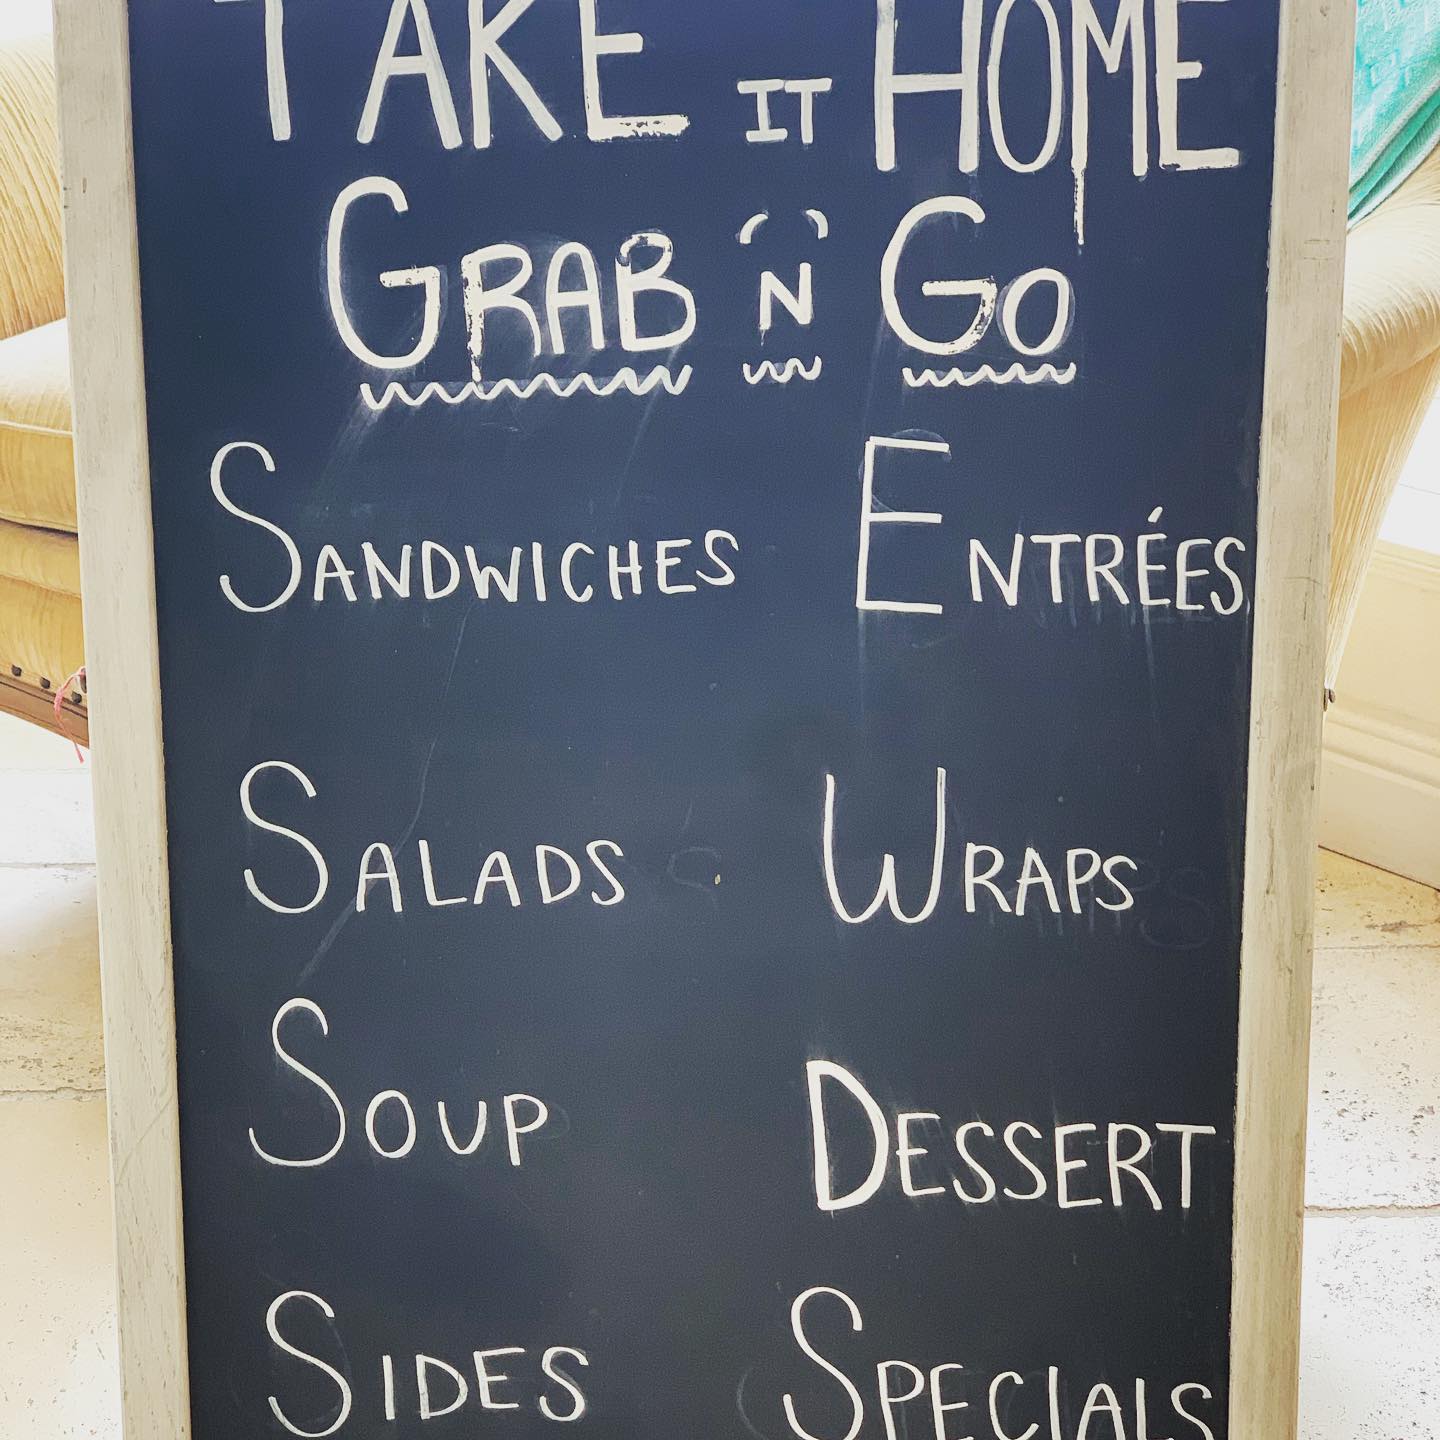 TAKE IT HOME
GRAB 'N' GO
SANDWICHES
ENTRÉES
SALADS
WRAPS
SOUP
DESSERT
SIDES
SPECIALS